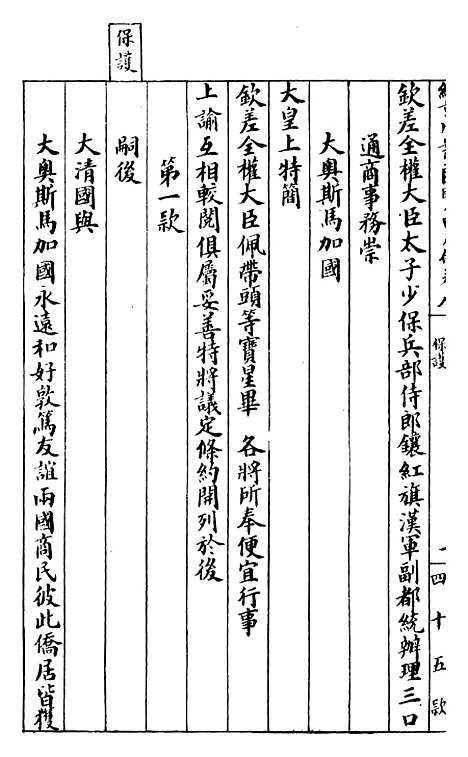 保護
保護
四十五款
欽差全權大臣太子少保兵部侍郎鑲紅旗漢軍副都統辦理三口
通商事務崇
大奧斯馬加國
大皇上特簡
欽差全權大臣佩帶頭等寶星畢 各將所奉便宜行事
上諭互相較閱俱屬妥善特將議定條約開列於後
第一款
嗣後
大清國與
大奧斯馬加國永遠和好敦篤友誼兩國商民彼此僑居皆獲